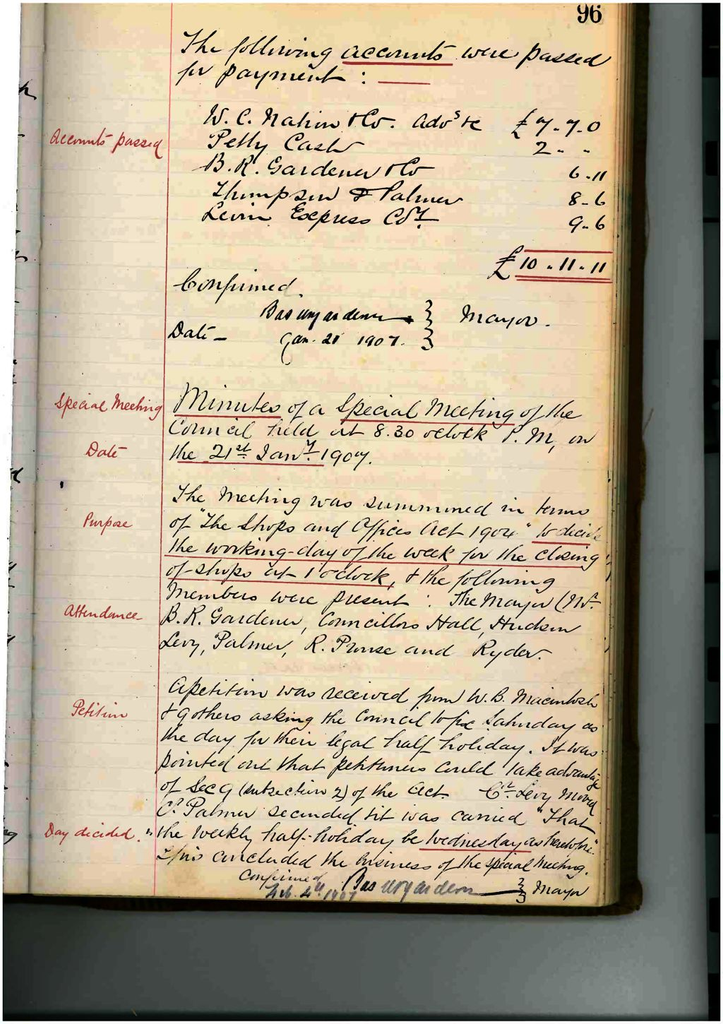 96
The following accounts were passed
for payment :
Accounts passed
W. C. Nation & Co. Advs &c £7-7-0
Petty Cash 2 - -
B. R. Gardener & Co 6-11
Thompson & Palmer 8-6
Levin Express Coy. 9-6
£10-11-11
Confirmed
Bas R Gardener Mayor.
Date - Jan. 21 1907.
Special Meeting
Minutes of a Special Meeting of the
Council held at 8.30 oclock P.M, on
Date
the 21st Jany. 1907.
The Meeting was summoned in terms
Purpose
of "The Shops and Offices Act 1904" to decide
the working-day of the week for the closing
of shops at 1 o'clock, & the following
Attendance
Members were present : The Mayor (Mr
B. R. Gardener, Councillors Hall, Hudson
Levy, Palmer, R. Prouse and Ryder.
A petition was received from W. B. Macintosh
Petition
& 9 others asking the Council to fix Saturday as
the day for their legal half holiday. It was
pointed out that petitioners could take advantage
of Sec 9 (subsection 2) of the Act. Cr. Levy moved
Cr. Palmer seconded & it was carried "That
Day decided.
"the weekly half-holiday be Wednesday as heretofore"
This concluded the business of the special meeting.
Confirmed
Feb. 4th 1907 Mayor